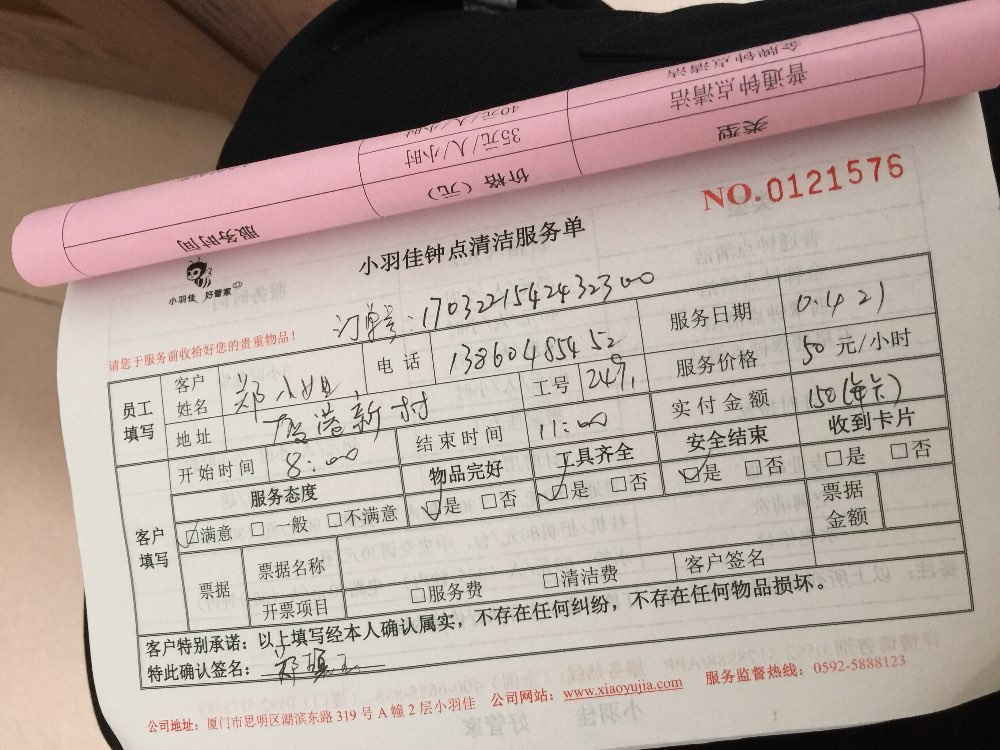 金牌钟点清洁
40元/人/小时
普通钟点清洁
35元/人/小时
类型
价格（元）
服务时间
NO.0121576
小羽佳钟点清洁服务单
小羽佳 好管家
订单号：17032215424323 00
请您于服务前收拾好您的贵重物品！
员工填写
客户姓名 郑小姐 电话 13860485452 服务日期 0.4 21
地址 新村 工号 2479 服务价格 50 元/小时
开始时间 8:00 结束时间 11:00 实付金额 150
客户填写
服务态度 物品完好 工具齐全 安全结束 收到卡片
☑满意 □一般 □不满意 ☑是 □否 ☑是 □否 ☑是 □否 □是 □否
票据 票据名称 票据金额
开票项目 □服务费 □清洁费 客户签名
客户特别承诺：以上填写经本人确认属实，不存在任何纠纷，不存在任何物品损坏。
特此确认签名：
公司地址：厦门市思明区湖滨东路 319 号 A 幢 2 层小羽佳 公司网站：www.xiaoyujia.com 服务监督热线：0592-5888123